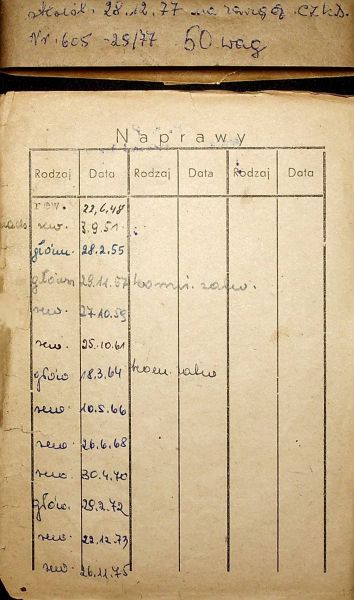 28.12.77 na
Nr. 605 -25/77 50 wag
Naprawy
Rodzaj Data Rodzaj Data Rodzaj Data
rew. 22.6.48
rew. 3.9.51
główn. 28.2.55
główn 29.11.57
rew. 27.10.59
rew. 25.10.61
główn 18.3.64
rew. 10.5.66
rew. 26.6.68
rew. 30.4.70
główn. 29.2.72
rew. 22.12.73
rew. 26.11.75